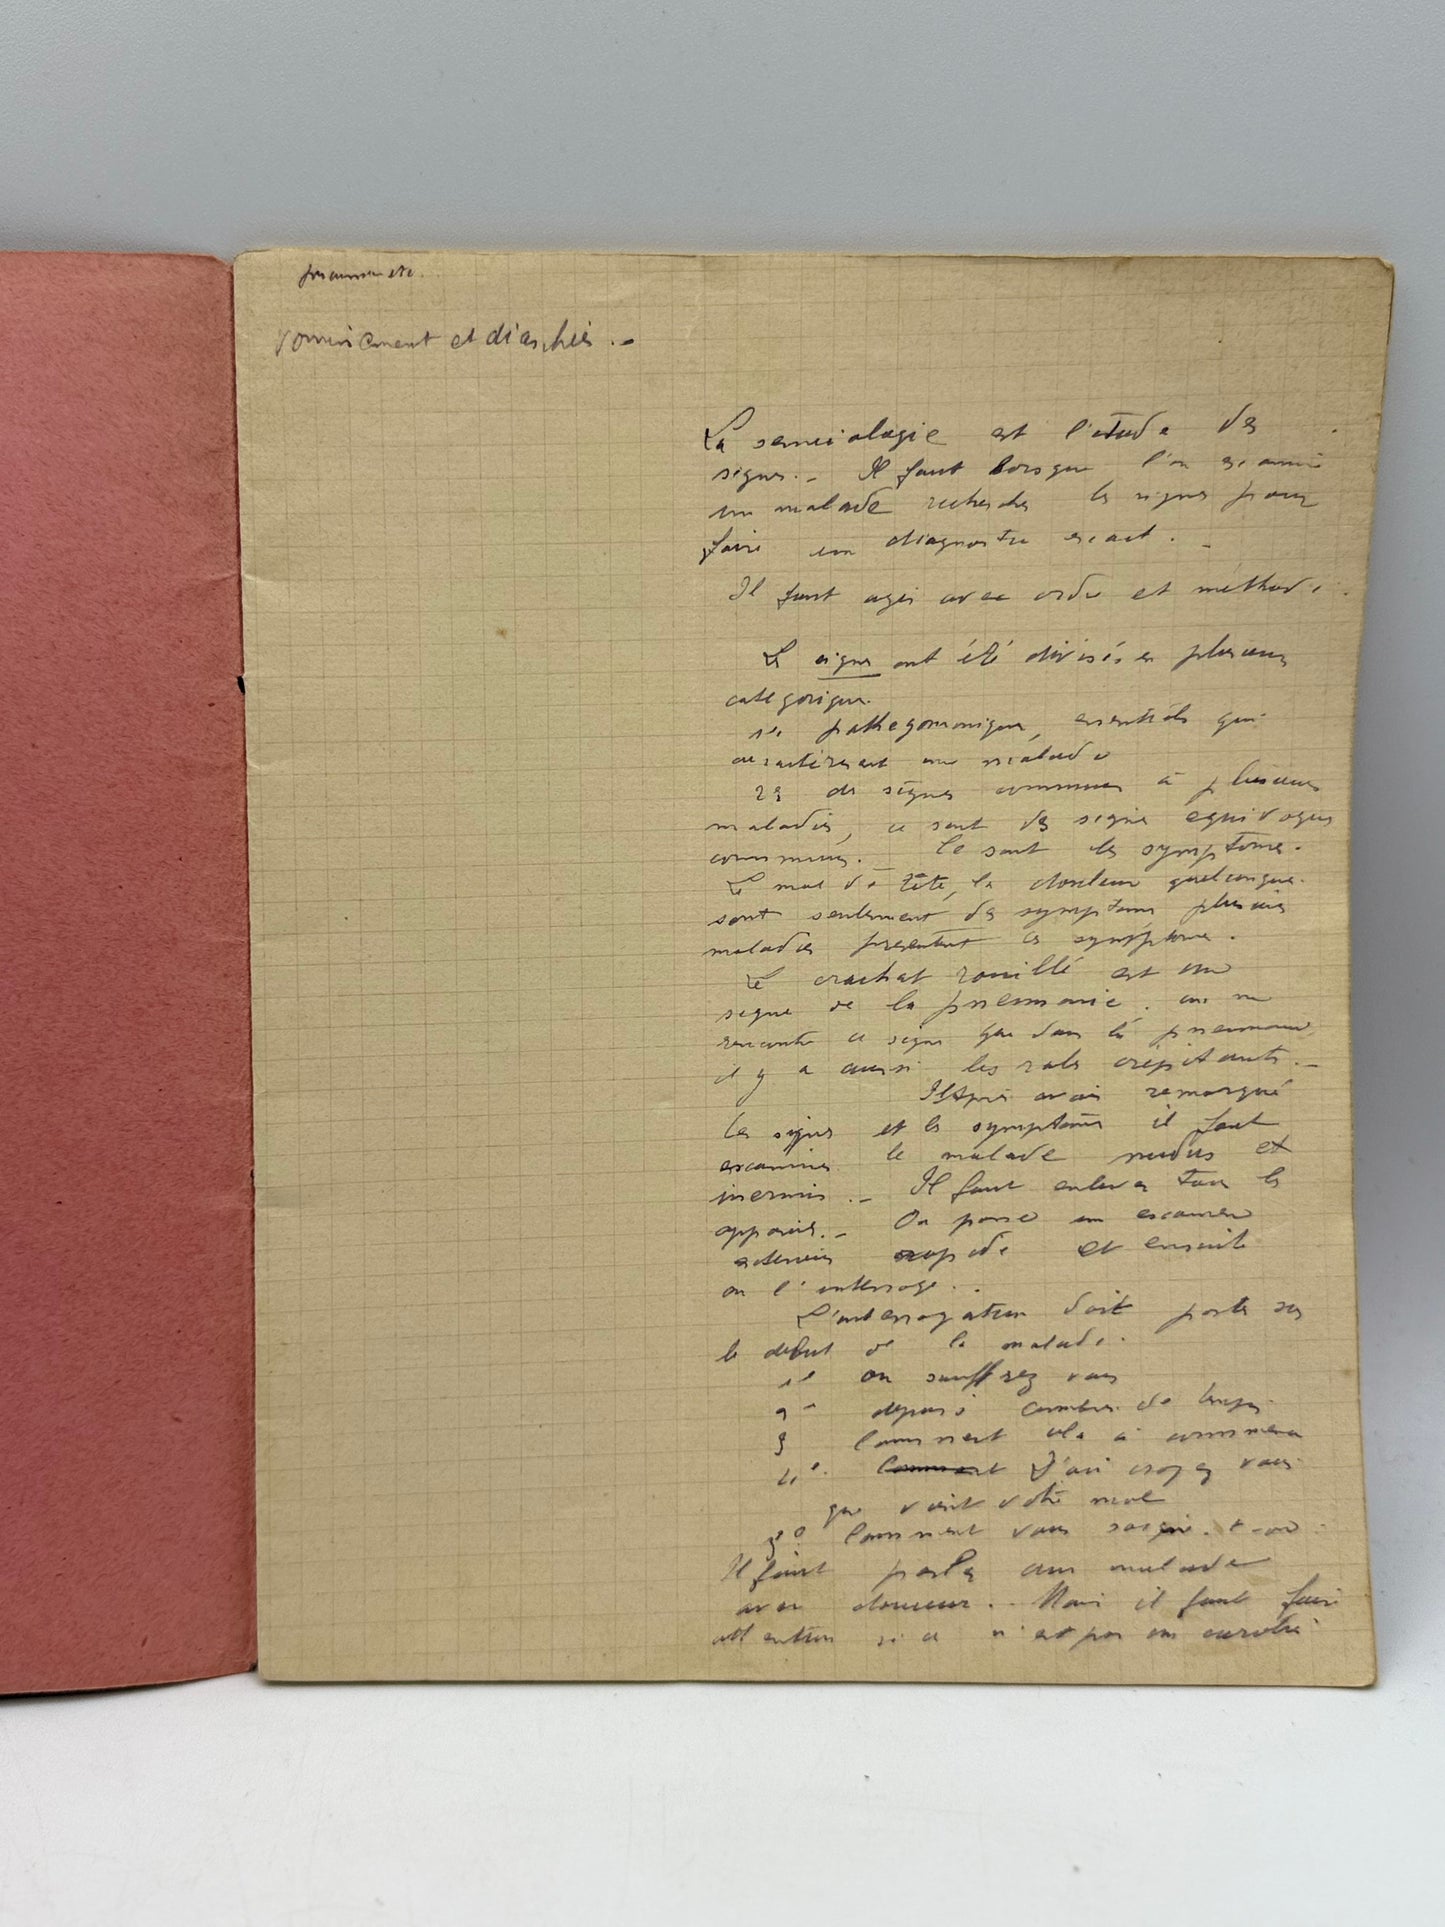 vomissement et diarrhées . –
La semiologie est l'étude des
signes. – Il faut lorsque l'on examine
un malade rechercher les signes pour
faire un diagnostic exact. –
Il faut agir avec ordre et méthode.
Les signes ont été divisés en plusieurs
categorique.
1º pathegonomonique, essentiels qui
caractérisent une maladie
2º des signes communs à plusieurs
maladies, ce sont des signes equivoques
communs. – Ce sont les symptomes.
Le mal de tête, la douleur quelconque.
sont seulement des symptomes plusieurs
maladies presentent ces symptomes.
Le crachat rouillé est une
signe de la pneumonie. on ne
rencontre ce signe que dans la pneumonie,
il y a aussi les rales crépitants. –
Après avoir remarqué
les signes et les symptomes il faut
examiner le malade nudus et
inermis. – Il faut enlever tous les
– On passe un examen
exterieur rapide et ensuite
on l'interroge. .
L'interrogation doit porter sur
le debut de la maladie.
1º ou souffrez vous
2º depuis combien de temps
3 Comment cela a commencé
4º. Comment D'où croyez vous
que vient votre mal
5º Comment vous soigne-t-on
Il faut parler au malade
avec douceur. – Mais il faut faire
attention si ce n'est pas un